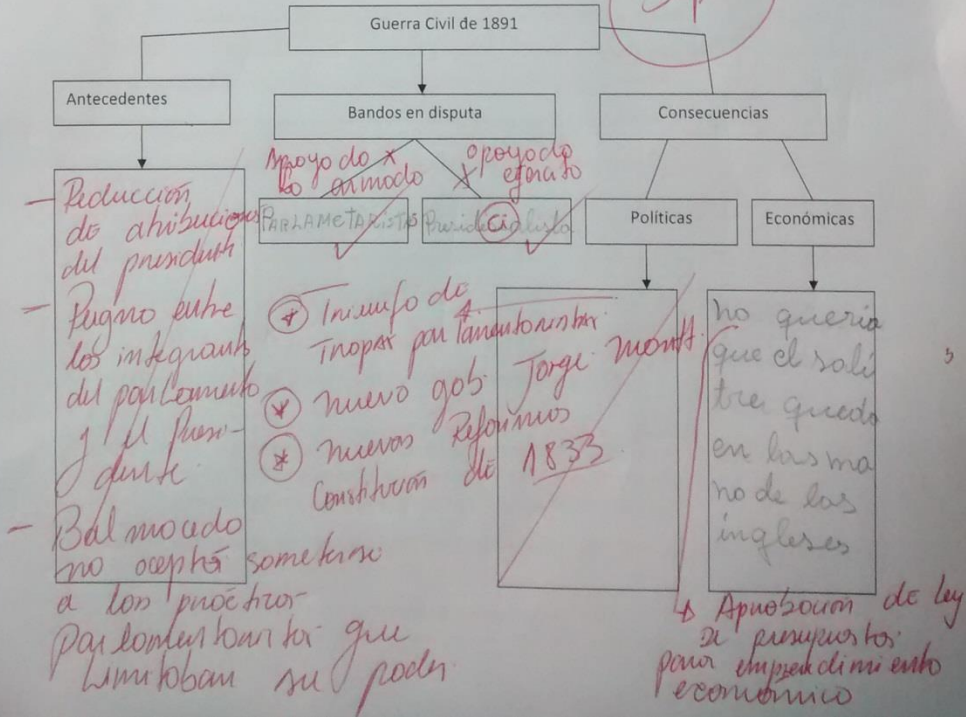 Guerra Civil de 1891
Antecedentes
Bandos en disputa
Consecuencias
Apoyado x
la armada
apoyado
x ejército
PARLAMETARISTAS
Presidecialista
ci
Políticas
Económicas
- Reducción
de atribuciones
del presidente
- Pugna entre
los integrantes
del parlamento
y el Presi-
dente.
- Balmaceda
no aceptó someterse
a las prácticas
parlamentaristas que
limitaban su poder
* Triunfo de
Tropas parlamentaristas.
* nuevo gob. Jorge Montt.
* nuevas Reformas
Constitución de 1833
no queria
que el sali
tre quedo
en las ma
no de los
ingleses
Aprobación de Ley
de presupuestos
para emprendimiento
económico